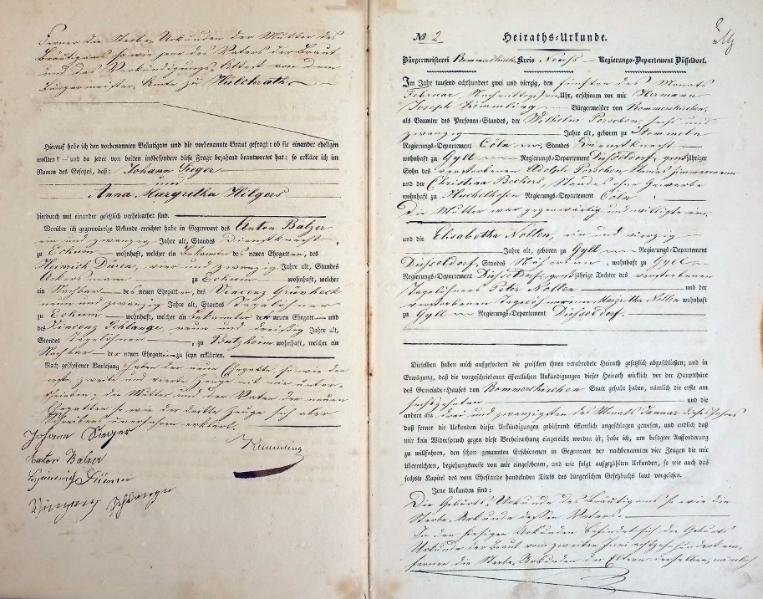 Ferner die Sterbe-Urkunden der Mutter des
Bräutigams so wie jene des Vaters der Braut
und das Verkündigungs-Attest von dem
Bürgermeister-Amte zu Hülchrath
Hierauf habe ich den vorbenannten Bräutigam und die vorbenannte Braut gefragt: ob sie einander ehelichen
wollen? – und da jeder von beiden insbesondere diese Frage bejahend beantwortet hat: so erkläre ich im
Namen des Gesetzes, daß: Johann Sieger
und
Anna Margretha Hilgers
hierdurch mit einander gesetzlich verheirathet sind.
Worüber ich gegenwärtige Urkunde errichtet habe in Gegenwart des Anton Balzer
ein und zwanzig Jahre alt, Standes Dienstknecht
zu Eckum wohnhaft, welcher ein Bekannter der neuen Ehegatten, des
Heinrich Düren, vier und zwanzig Jahre alt, Standes
Ackersmann zu Eckum wohnhaft, welcher
ein Nachbar der neuen Ehegatten, des Vincenz
neun und zwanzig Jahre alt, Standes Tagelöhner
zu Eckum wohnhaft, welcher ein Bekannter der neuen Ehegatten und
des Vincenz Schlange, neun und dreißig Jahre alt,
Standes Tagelöhner zu Butzheim wohnhaft, welcher ein
Nachbar der neuen Ehegatten zu sein erklärten.
Nach geschehener Vorlesung haben der neue Ehegatte, so wie der
erste zweite und vierte Zeuge mit mir unter-
schrieben; die Mutter und der Vater der neuen
Ehegatten so wie der dritte Zeuge sich aber
Schreibens unerfahren erklärt.
Johann Sieger
Kümmling
Anton Balzer
Heinrich Düren
Vincenz Schlange
№ 2 Heiraths-Urkunde.
Bürgermeisterei Kommerskirchen Kreis Neuß Regierungs-Departement Düsseldorf.
Im Jahre tausend achthundert zwei und vierzig, den fünften des Monats
Februar Nachmittags Uhr, erschienen vor mir Hermann
Joseph Kümmling Bürgermeister von Rommerskirchen,
als Beamter des Personen-Standes, der Wilhelm Porschen sechs und
zwanzig Jahre alt, geboren zu Stommeln
Regierungs-Departement Cöln Standes Dienstknecht
wohnhaft zu Gyll Regierungs-Departement Düsseldorf, großjähriger
Sohn des verstorbenen Adolph Porschen Standes Zimmermann
und der Christina Beckers Standes ohne Gewerbe
wohnhaft zu Regierungs-Departement Cöln
Die Mutter war gegenwärtig und willigte ein.
und die Elisabetha Nolten, ein und vierzig
Jahre alt, geboren zu Gyll Regierungs-Departement
Düsseldorf, Standes wohnhaft zu Gyll
Regierungs-Departement Düsseldorf, großjährige Tochter des verstorbenen
Tagelöhners Peter Nolten und der
verstorbenen Tagelöhnerin Margretha Nolten wohnhaft
zu Gyll Regierungs-Departement Düsseldorf.
Dieselben haben mich aufgefordert die zwischen ihnen verabredete Heirath gesetzlich abzuschließen; und in
Erwägung, daß die vorgeschriebenen öffentlichen Ankündigungen dieser Heirath wirklich vor der Hauptthüre
des Gemeinde-Hauses von Rommerskirchen Statt gehabt haben, nämlich die erste am
sechszehnten und die
andere am drei und zwanzigsten des Monats Januar dieses Jahres
daß ferner die Urkunden dieser Ankündigungen gebührend öffentlich angeschlagen gewesen, und endlich daß
mir kein Widerspruch gegen diese Verheirathung eingereicht worden ist; habe ich, um besagter Aufforderung
zu willfahren, den schon genannten Erschienenen in Gegenwart der nachbenannten vier Zeugen die mir
überreichten, beziehungsweise von mir eingesehenen, und wie folgt aufgezählten Urkunden, so wie auch das
sechste Kapitel des vom Ehestande handelnden Titels des bürgerlichen Gesetzbuchs laut vorgelesen.
Jene Urkunden sind:
Die Geburts-Urkunde des Bräutigams so wie die
Sterbe-Urkunde dessen Vaters.
In den hiesigen Urkunden befindet sich die Geburts
Urkunde der Braut vom zweiten Juni achtzehnhundert ein,
ferner die Sterbe-Urkunden der Eltern derselben, nämlich